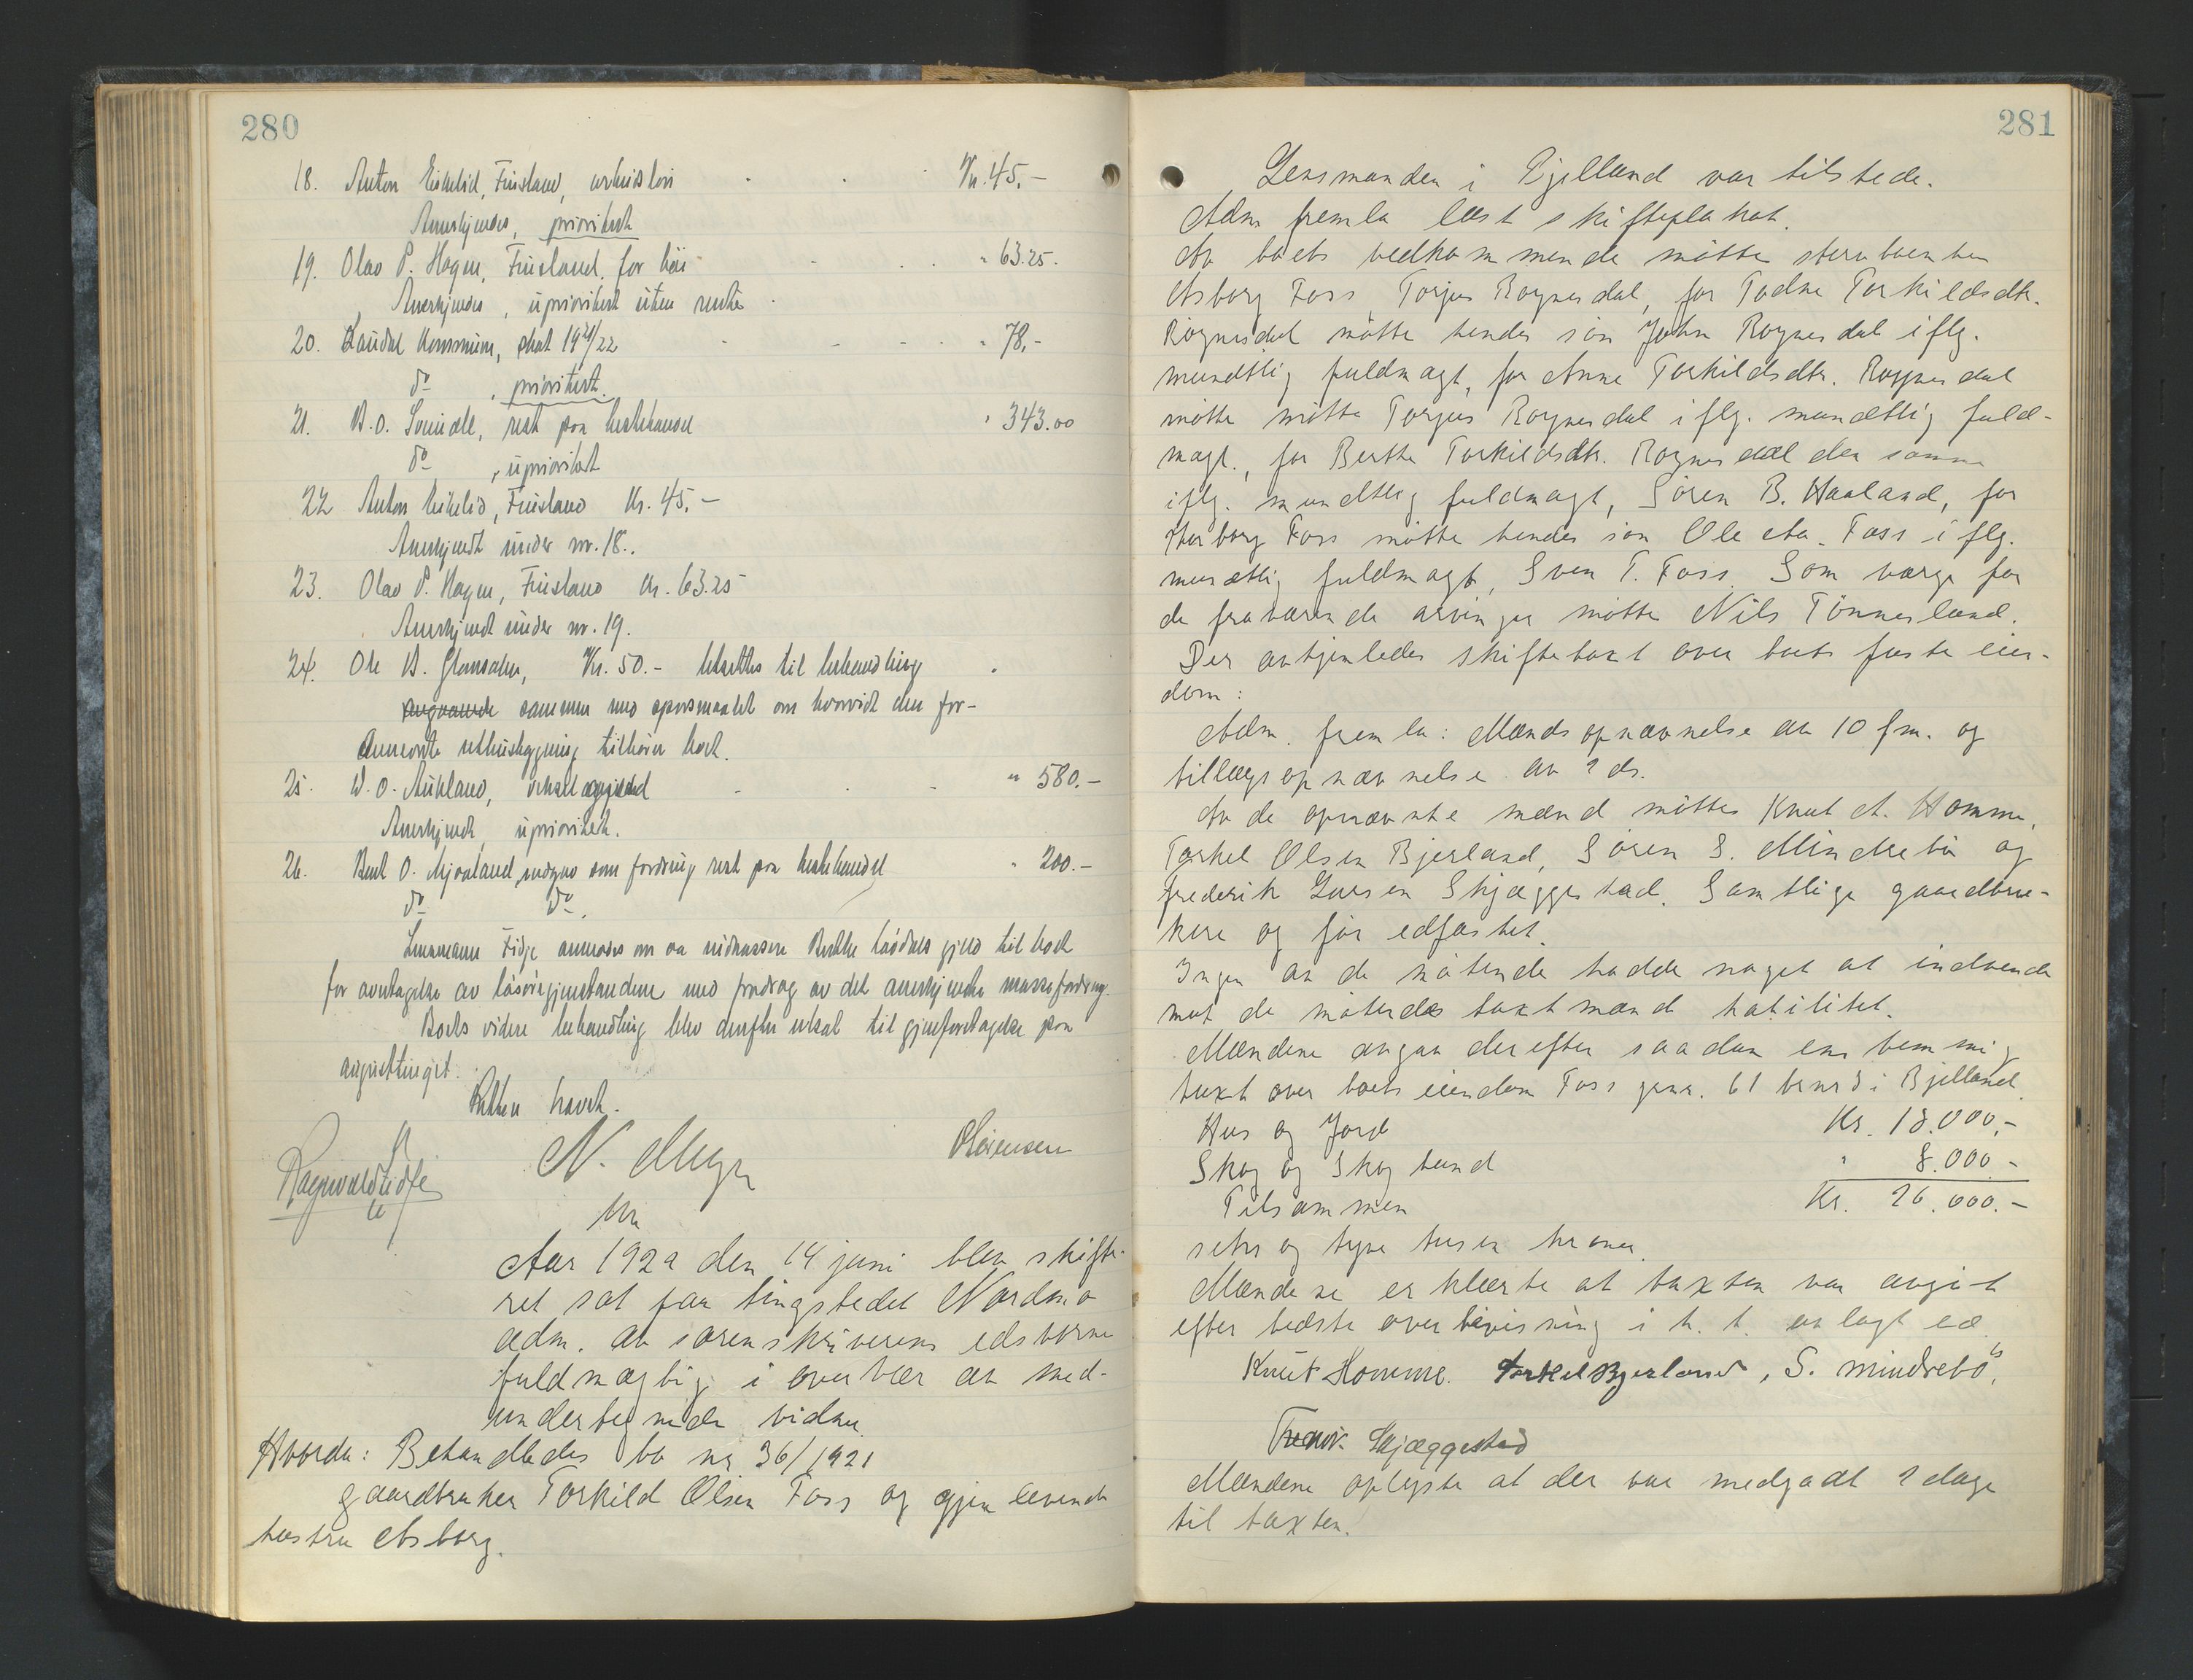 280
18. Anton Eikelid, Finsland, arbeidslön Kr. 45.-
Anerkjendes, prioritert
19. Olav P. Hagen, Finsland, for höi " 63.25.
Anerkjendes, uprioritert uten renter
20. Laudal Kommune, skat 1921/22 " 78.-
do , prioritert.
21. B. O. Sveindal, rest paa hestehandel " 343.00
do , uprioritert
22 Anton Eikelid, Finsland Kr. 45.-
Anerkjendt under nr. 18.
23. Olav P. Hagen, Finsland Kr. 63.25
Anerkjendt under nr. 19.
24. Ole B. Kr. 50.- utsættes til behandling
angaaende sammen med spörsmaalet om hvorvidt den for-
uthusbygning tilhörer boet.
25. O. Aukland, " 580.-
Anerkjendt, uprioritert.
26. Bent O. Mjaaland, som fordring rest paa hestehandel " 200.-
do do.
Lensmann Fidje anmodes om aa indkassere gjeld til boet
for avertagelse av lösöregjenstandene med fradrag av det anerkjendte massefordring.
Boets videre behandling blev derefter utsat til gjenforetagelse paa
augusttinget.
Retten hævet.
N. Meyer
Sörensen
Ragnvald Fidje
Aar 1922 den 14 juni blev skifte-
ret sat paa tingstedet Nordmo
adm. av sorenskriverens edsvorne
fuldmægtig i overvær av med-
undertegnede vidner
Hvorda: Behandledes bo nr 36/1921
gaardbruker Torkild Olsen Foss og gjenlevende
hustru Asborg.
281
Lensmanden i Bjelland var tilstede.
Adm fremla læst skifteplakat.
Av boets vedkommende mötte sterboenken
Asborg Foss, Torjus Rognesdal, for Todne Torkildsdtr.
Rognesdal mötte hendes sön John Rognesdal iflg.
mundtlig fuldmagt, for Anne Torkildsdtr. Rognesdal
mötte mötte Torjus Rognesdal iflg. mundtlig fuld-
magt, for Berthe Torkildsdtr. Rognesdal den samme
iflg. mundtlig fuldmagt, Sören B. Haaland, for
Foss mötte hendes sön Ole A. Foss iflg.
mundtlig fuldmagt, Sven T. Foss. Som værge for
de fraværende arvinger mötte Nils Tönnesland.
Der avhjemledes skiftetaxt over boets faste eien-
dom:
Adm. fremla: Mændsopnævnelse av 10 fm. og
tillægsopnævnelse av 2 ds.
Av de opnævnte mænd mötte Knut A. Homme,
Torkel Olsen Bjerland, Sören S. Mindrebö og
Frederik Larsen Skjæggestad. Samtlige gaardbru-
kere og för edfæstet.
Ingen av de mötende hadde noget at indvende
mot de mötendes taxtmænds habilitet.
Mændene avgav derefter saadan enstemmig
taxt over boets eiendom Foss gnr. 61 brnr 3 i Bjelland
Hus og Jord Kr. 18.000,-
Skog og Skogbund " 8.000 -
Tilsammen Kr. 26.000.-
seks og tyve tusen kroner.
Mændene erklærte at taxten var avgit
efter bedste overbevisning i h. t. avlagt ed.
Knut Homme. Torkel Bjerland, S. Mindrebö,
Fredrik Skjæggestad
Mændene oplyste at der var medgaat 2 dage
til taxten.